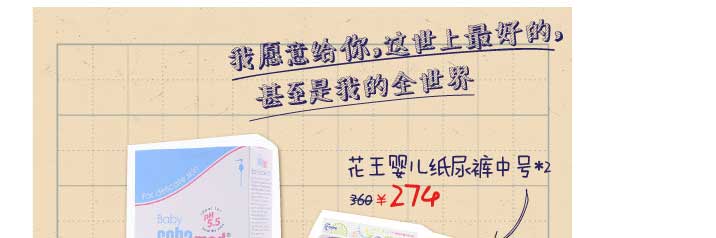 我愿意给你,这世上最好的,
甚至是我的全世界
花王婴儿纸尿裤中号*2
360 ¥274
For delicate skin
Baby
sebamed®
pH
5.5